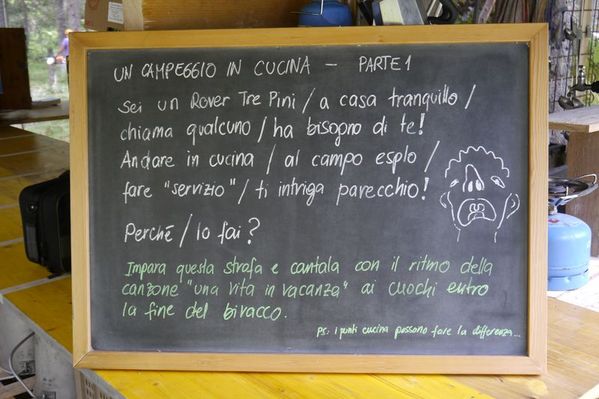 UN CAMPEGGIO IN CUCINA – PARTE 1
Sei un Rover Tre Pini / a casa tranquillo /
chiama qualcuno / ha bisogno di te!
Andare in cucina / al campo esplo /
fare "servizio" / ti intriga parecchio!
Perché / lo fai?
Impara questa strofa e cantala con il ritmo della
canzone "una vita in vacanza" ai cuochi entro
la fine del bivacco.
ps: i punti cucina possono fare la differenza...